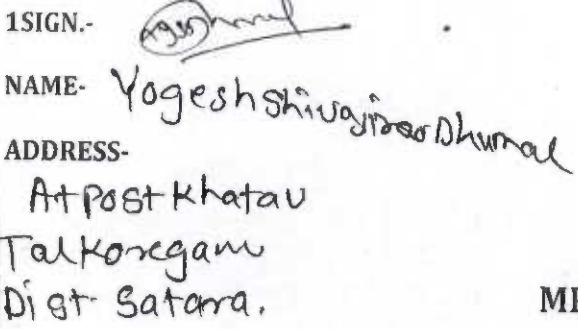 1SIGN.-
NAME- Yogesh Shivajirao Dhumal
ADDRESS-
At post Khatav
Tal Koregam
Dist- Satara.